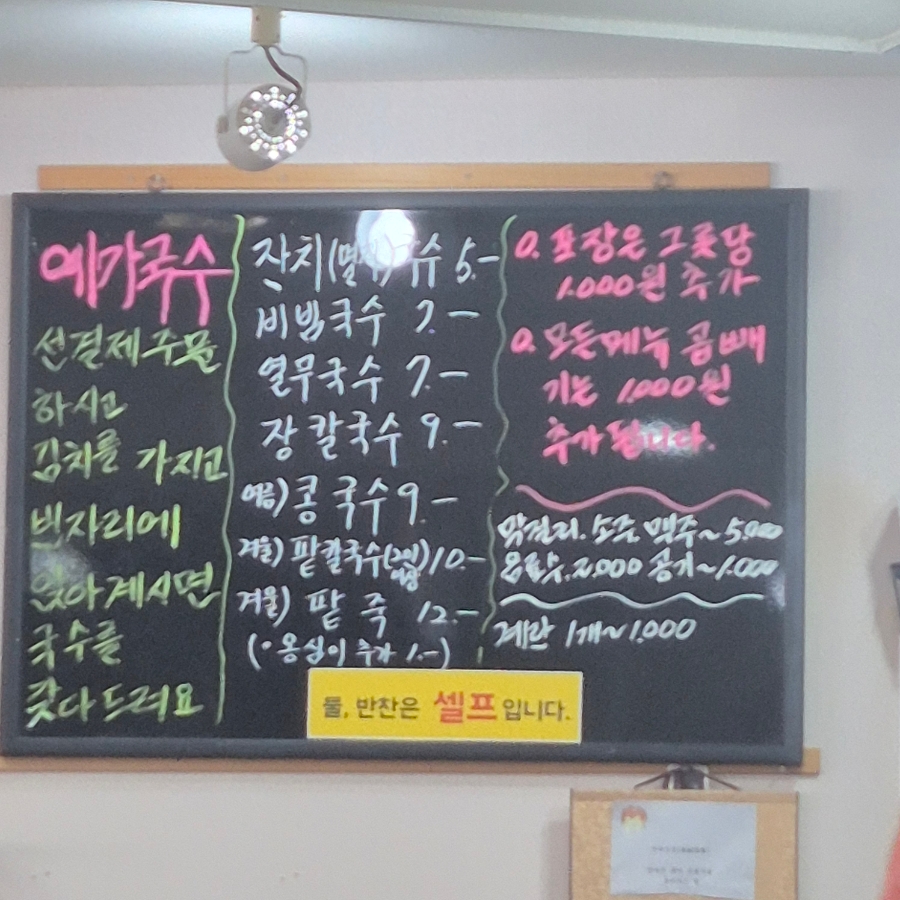 예가국수
선결제 주문
하시고
김치를 가지고
빈자리에
앉아계시면
국수를
갖다 드려요
잔치(멸치)국수 5.-
비빔국수 7.-
열무국수 7.-
장칼국수 9.-
여름) 콩국수 9.-
겨울) 팥칼국수(2인이상) 10.-
겨울) 팥죽 12.-
(옹심이 추가 1.-)
0. 포장은 그릇당
1.000원 추가
0. 모든메뉴 곱빼
기는 1.000원
추가 됩니다.
막걸리. 소주. 맥주~5.000
음료수. 2.000 공기~1.000
계란 1개~1.000
물, 반찬은 셀프입니다.